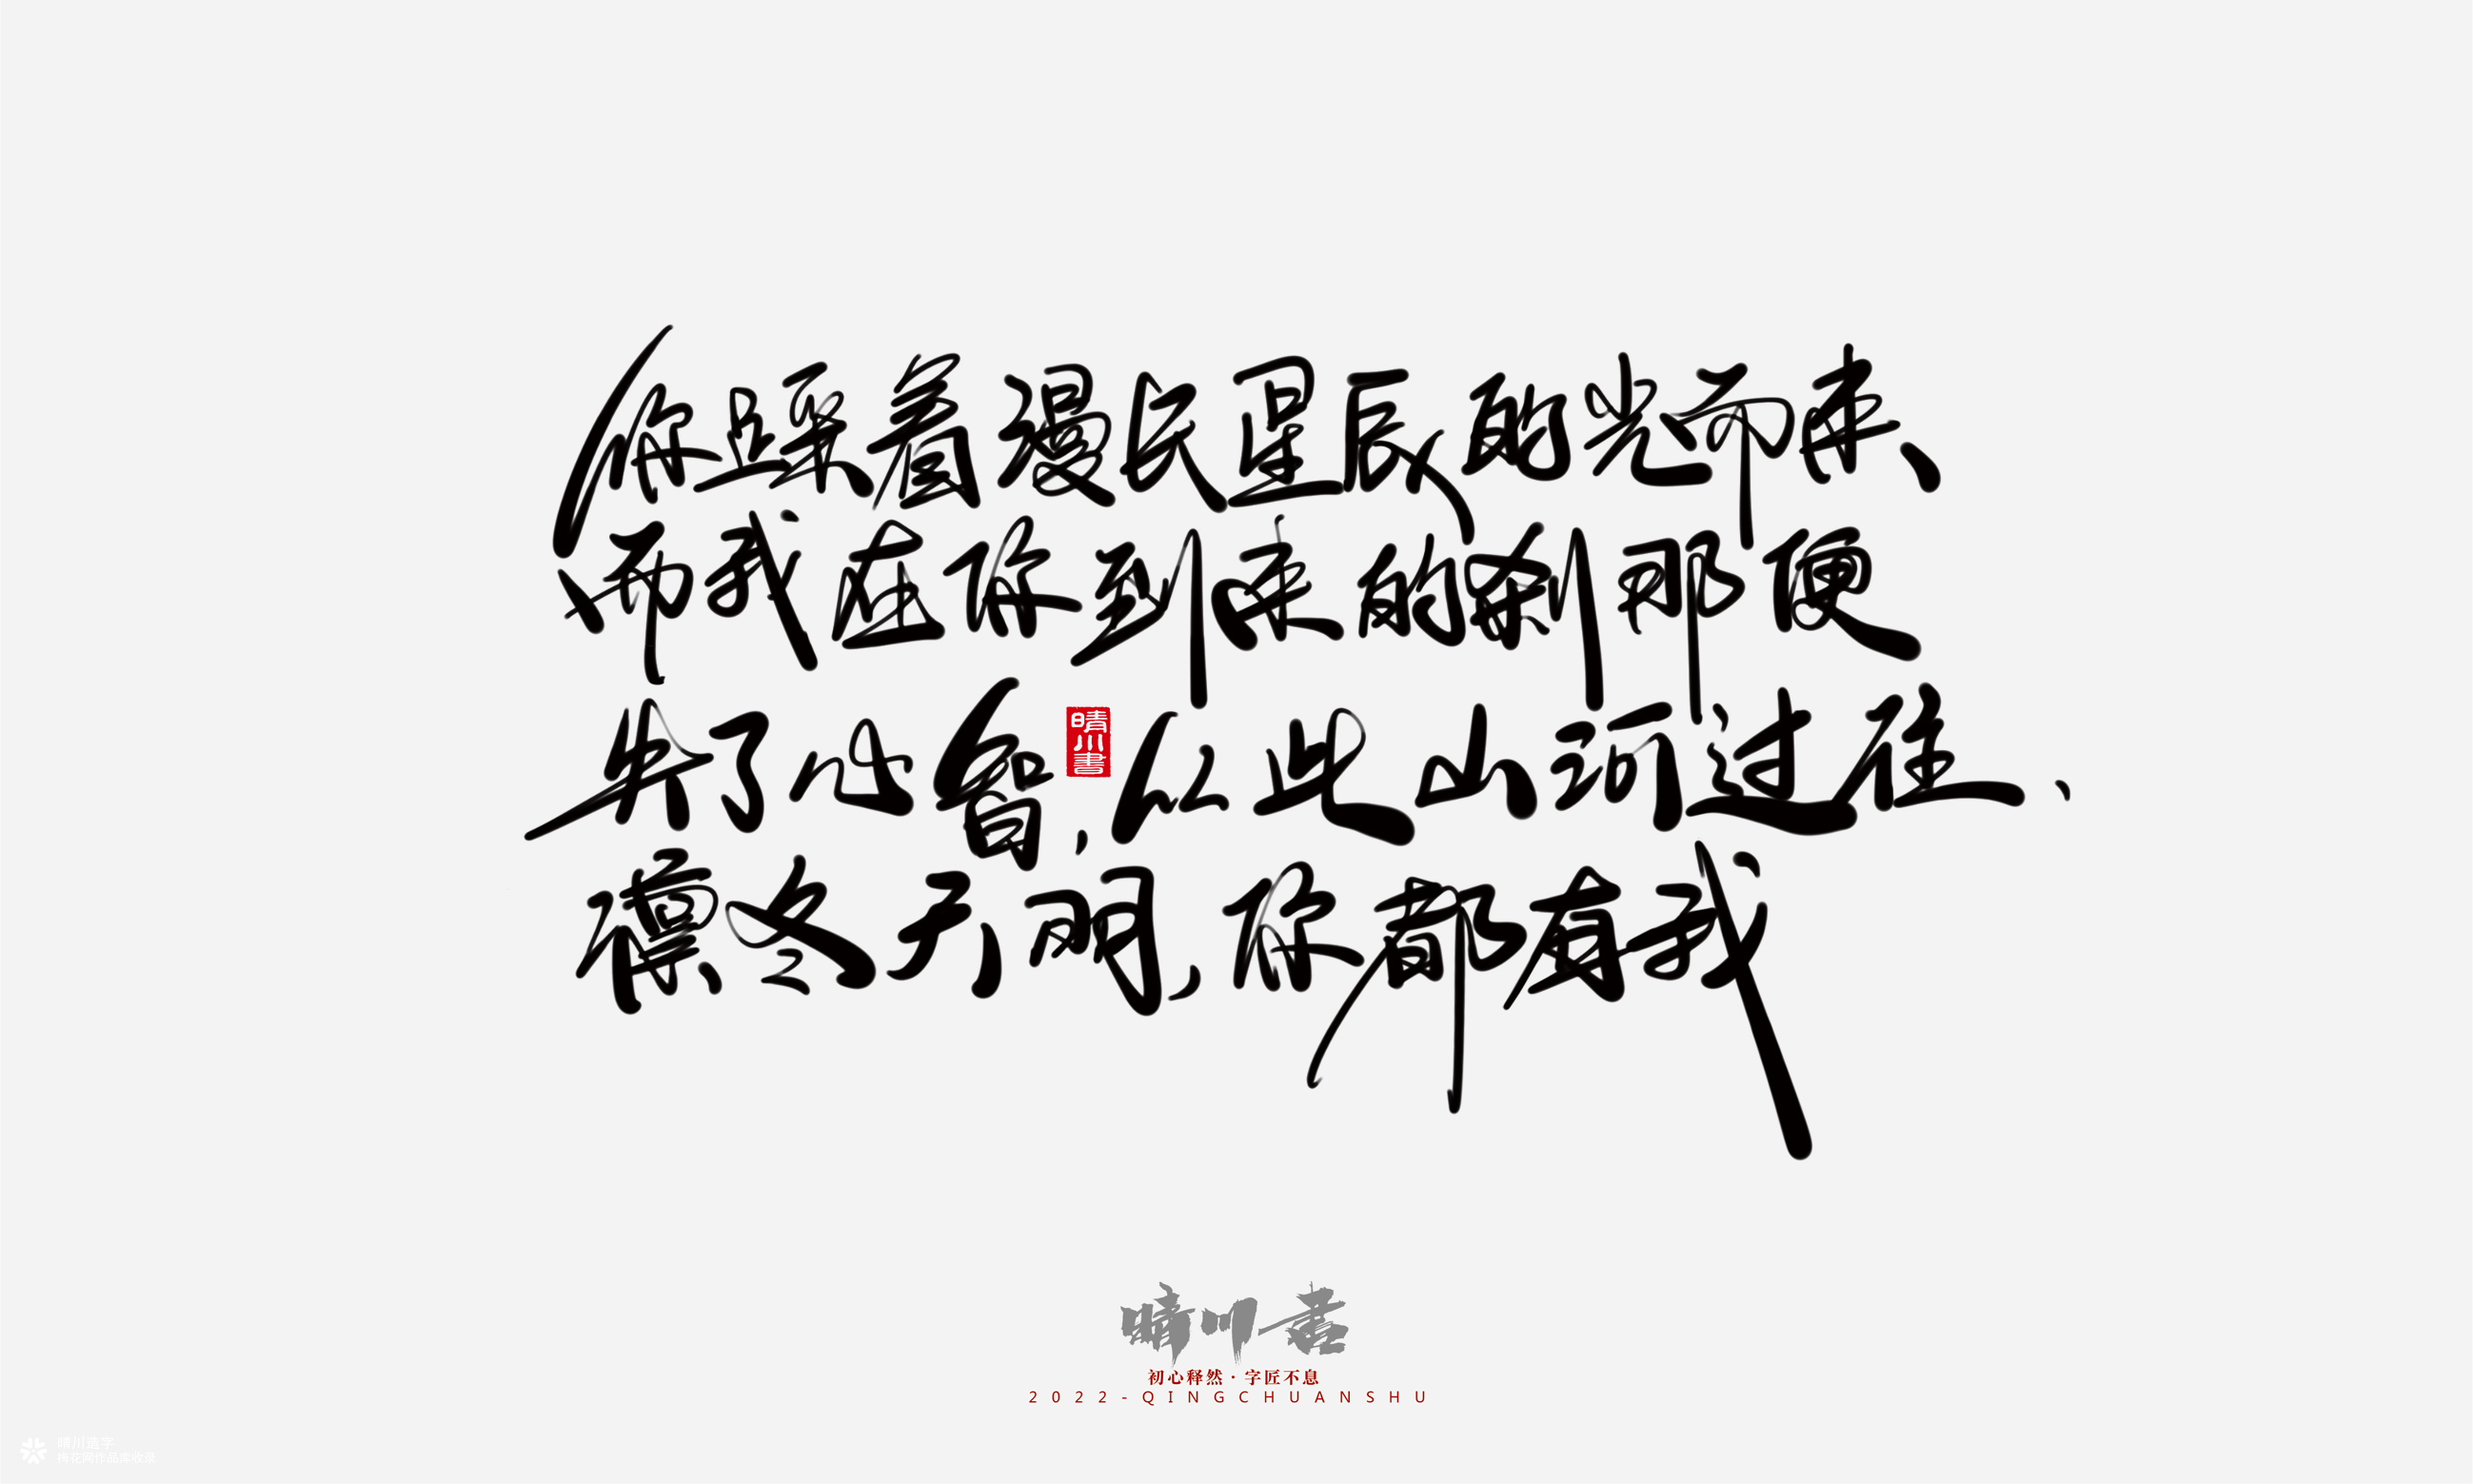 你踩着漫长星辰的光而来、
而我在你到来的刹那便
失了心智,以此山河过往、
凛冬天明,你都有我
晴川書
晴川書
初心释然·字匠不息
2022-QINGCHUANSHU
晴川造字
梅花网作品库收录